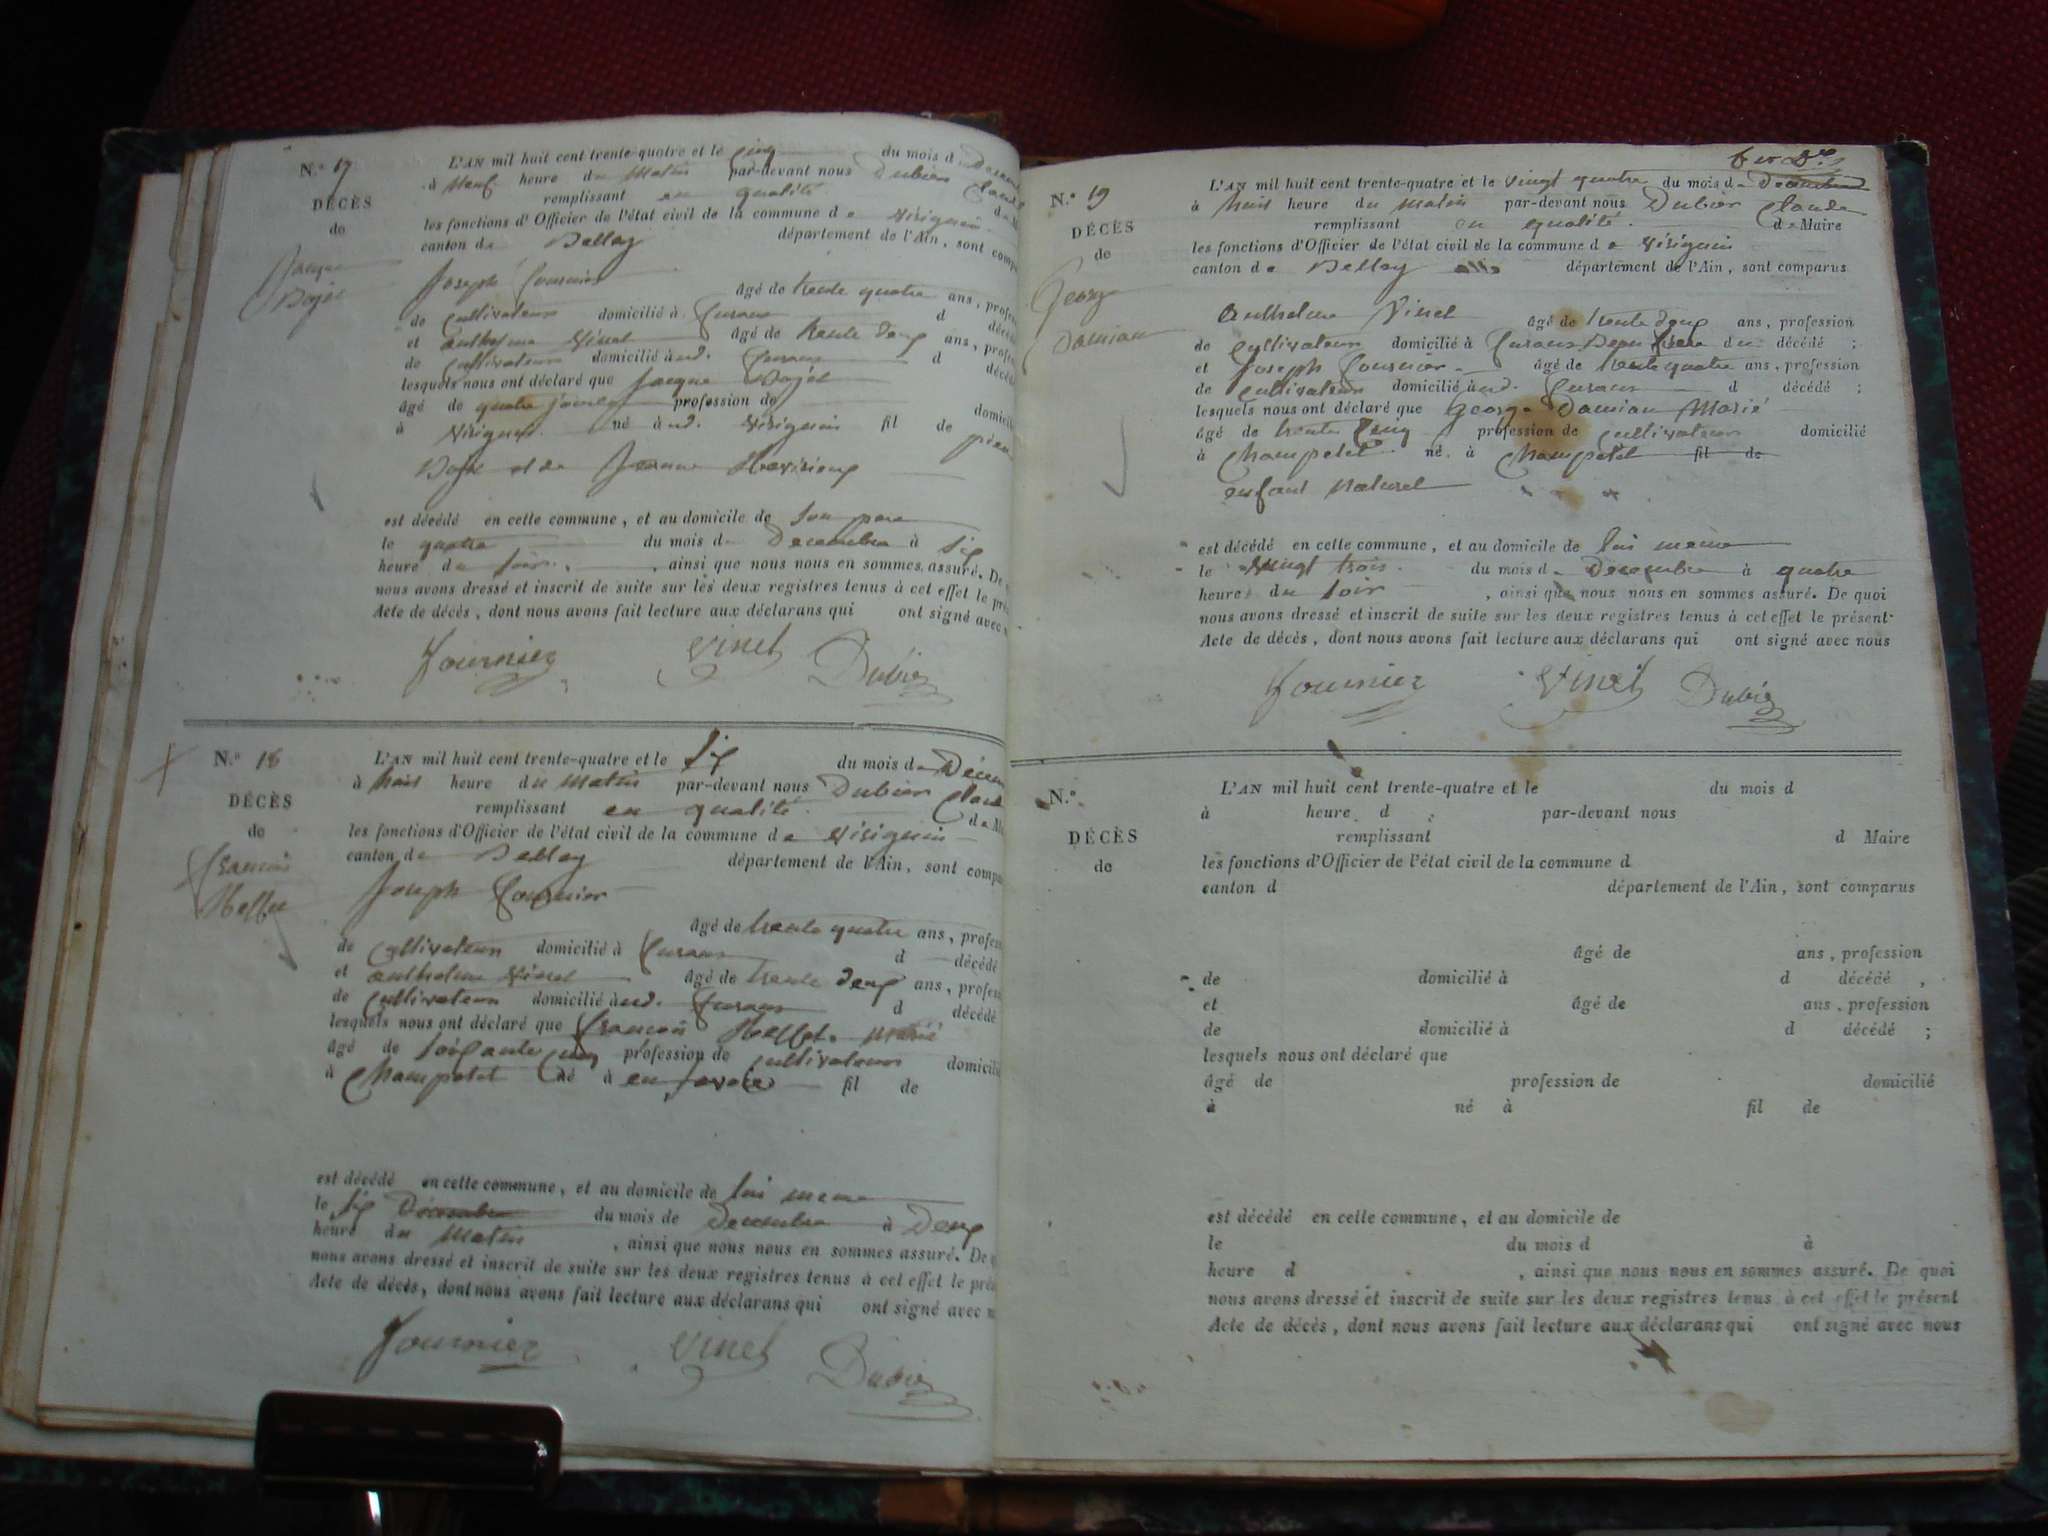 N.º 17
DÉCÈS
de
Jacque
Dojet
L'AN mil huit cent trente-quatre et le cinq du mois d
à neuf heure du matin par-devant nous Dubier Claude
remplissant en qualité
les fonctions d'Officier de l'état civil de la commune de Virignin
canton de Belley département de l'Ain, sont
Joseph Fournier
âgé de trente quatre ans,
de Cultivateur domicilié à d
et Anthelme Vinet âgé de trente deux ans,
de Cultivateur domicilié à ud. d
lesquels nous ont déclaré que Jacque Dojet
âgé de quatre jours profession de
à Virignin né à ud. Virignin fil de
et de Jeanne
est décédé en cette commune, et au domicile de son pere
le quatre du mois de Decembre à six
heure du soir, ainsi que nous nous en sommes assuré. De
nous avons dressé et inscrit de suite sur les deux registres tenus à cet effet le
Acte de décès, dont nous avons fait lecture aux déclarans qui ont signé avec
Fournier Vinet Dubier
N.º 18
DÉCÈS
de
francois
L'AN mil huit cent trente-quatre et le six du mois de
à huit heure du matin par-devant nous Dubier Claude
remplissant en qualité
les fonctions d'Officier de l'état civil de la commune de Virignin
canton de Belley département de l'Ain, sont
Joseph Fournier
âgé de trente quatre ans,
de Cultivateur domicilié à d décédé
et anthelme Vinet âgé de trente deux ans,
de Cultivateur domicilié à ud. d décédé
lesquels nous ont déclaré que francois marié
âgé de soixante cinq profession de cultivateur
à Champetel né à en savoie fil de
est décédé en cette commune, et au domicile de lui meme
le six Décembre du mois de Decembre à Deux
heure du Matin, ainsi que nous nous en sommes assuré. De
nous avons dressé et inscrit de suite sur les deux registres tenus à cet effet le
Acte de décès, dont nous avons fait lecture aux déclarans qui ont signé avec
Fournier Vinet Dubier
N.º 19
DÉCÈS
de
George
Damian
L'AN mil huit cent trente-quatre et le vingt quatre du mois de Decembre
à huit heure du matin par-devant nous Dubier Claude
remplissant en qualité de Maire
les fonctions d'Officier de l'état civil de la commune de Virignin
canton de Belley département de l'Ain, sont comparus
Anthelme Vinet âgé de trente deux ans, profession
de Cultivateur domicilié à Beau frere du décédé ;
et Joseph Fournier âgé de trente quatre ans, profession
de cultivateur domicilié à ud. d décédé ;
lesquels nous ont déclaré que George Damian Marié
âgé de trente cinq profession de cultivateur domicilié
à Champetel né à Champetel fil de
enfant naturel
est décédé en cette commune, et au domicile de lui mème
le vingt trois du mois de Decembre à quatre
heures du soir, ainsi que nous nous en sommes assuré. De quoi
nous avons dressé et inscrit de suite sur les deux registres tenus à cet effet le présent
Acte de décès, dont nous avons fait lecture aux déclarans qui ont signé avec nous
Fournier Vinet Dubier
N.º
DÉCÈS
de
L'AN mil huit cent trente-quatre et le du mois d
à heure d par-devant nous
remplissant d Maire
les fonctions d'Officier de l'état civil de la commune d
canton d département de l'Ain, sont comparus
âgé de ans, profession
de domicilié à d décédé ,
et âgé de ans, profession
de domicilié à d décédé ;
lesquels nous ont déclaré que
âgé de profession de domicilié
à né à fil de
est décédé en cette commune, et au domicile de
le du mois d à
heure d , ainsi que nous nous en sommes assuré. De quoi
nous avons dressé et inscrit de suite sur les deux registres tenus à cet effet le présent
Acte de décès, dont nous avons fait lecture aux déclarans qui ont signé avec nous